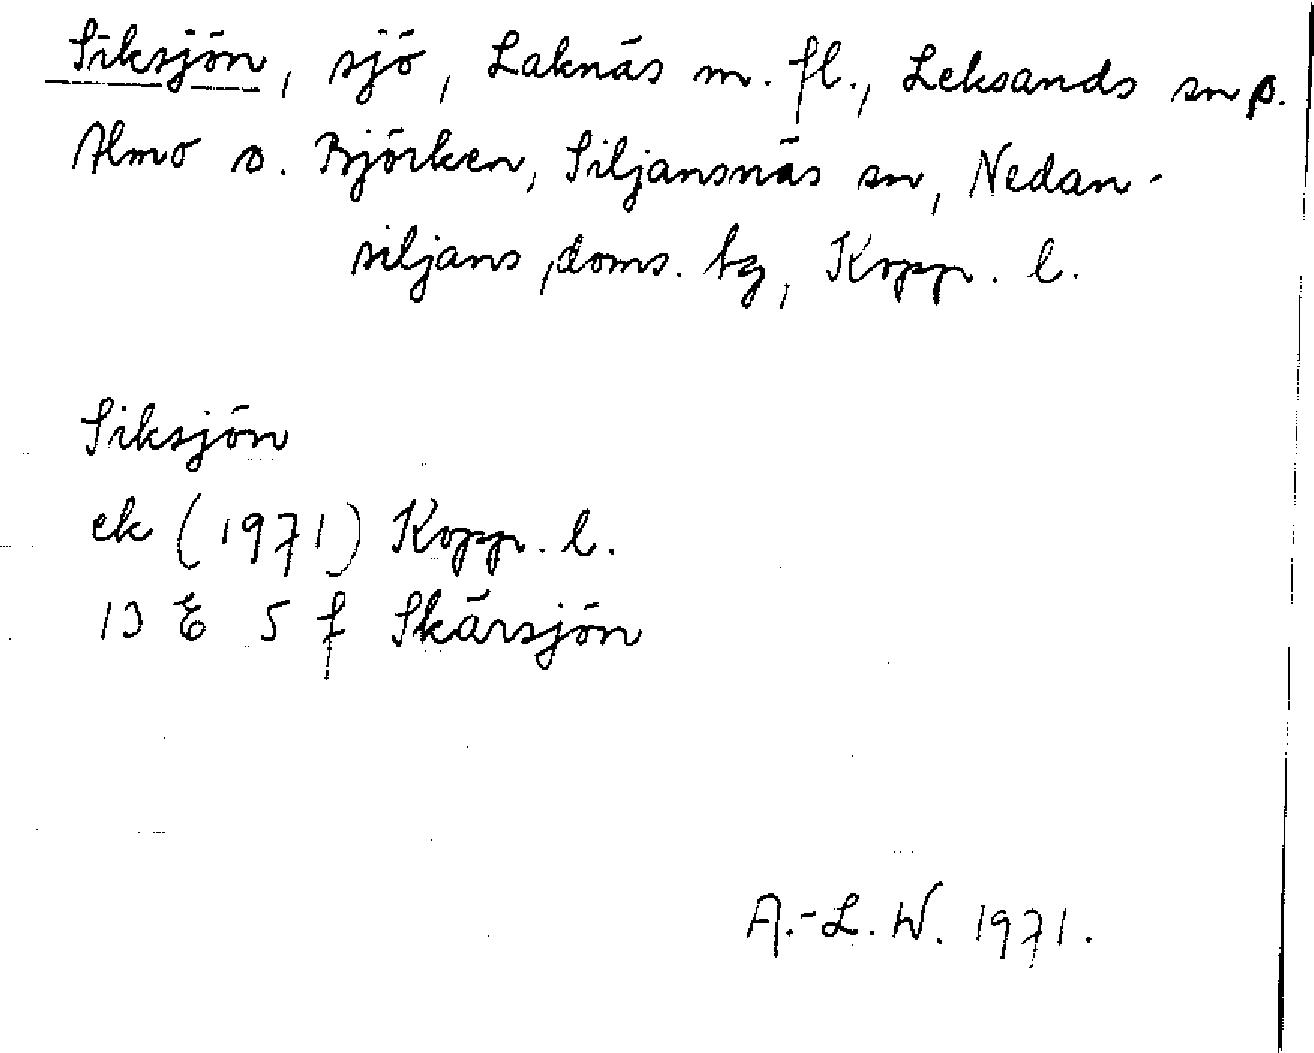 Siksjön, sjö, Laknäs m. fl., Leksands sn o.
Almo o. Björken, Siljansnäs sn, Nedan-
siljans doms. tg, Kopp. l.
Siksjön
ek (1971) Kopp. l.
13 E 5 f Skärsjön
A.-L. W. 1971.